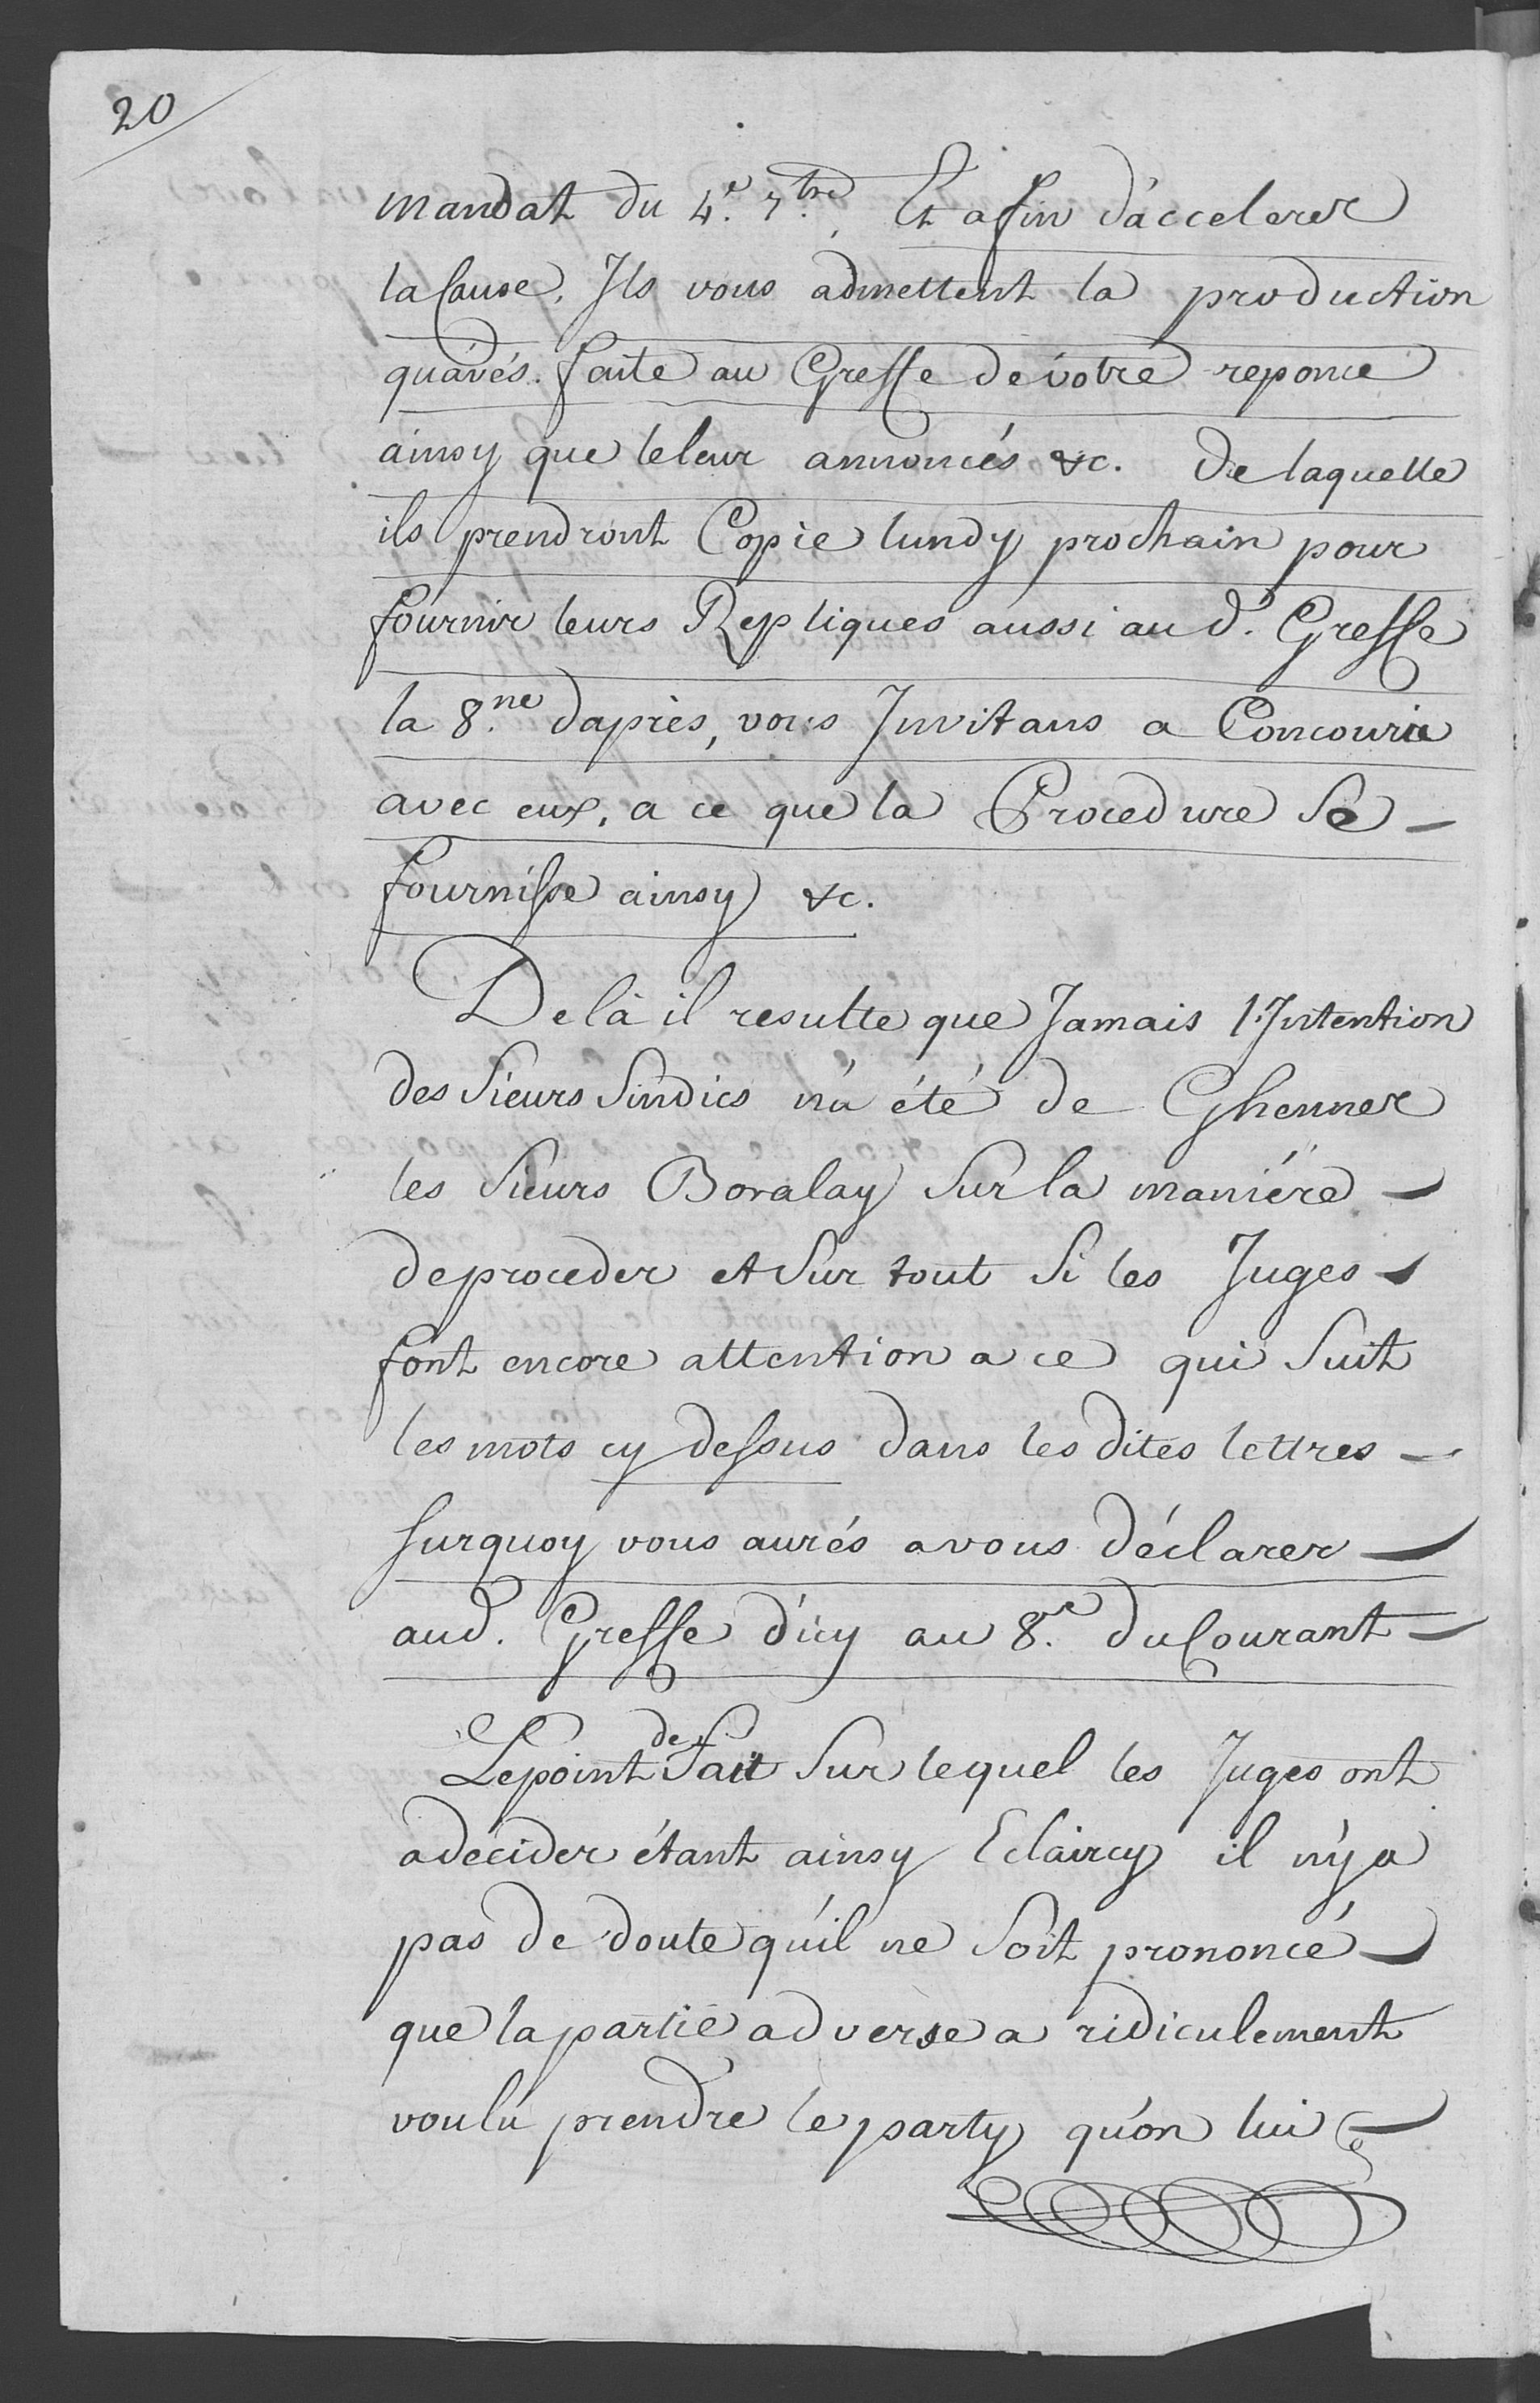 20
mandat du 4.e 7.tre, Et afin d'accelerer
la Cause, Ils vous admettent la production
qu'avés faite au Greffe de vôtre reponce
ainsy que le leur annoncés &c. de laquelle
ils prendront Copie lundy prochain pour
fournir leurs Repliques aussi au d. Greffe
la 8.ne d'aprės, vous Invitans a Concourir
avec eux, a ce que la Procedure Se -
fournisse ainsy &c.
De là il resulte que Jamais l'Intention
des Sieurs Sindics n'a été de Ghenner
les Sieurs Bovalay Sur la maniére -
de proceder et Sur tout Si les Juges -
font encore attention a ce qui Suit
les mots cy dessus dans les dites lettres -
Surquoy vous aurés a vous déclarer -
aud. Greffe d'icy au 8.e du Courant -
Le point de Fait Sur lequel les Juges ont
a decider étant ainsy Eclaircy il n'y a
pas de doute qu'il ne Soit prononcé -
que la partie adverse a ridiculement
voulu prendre le party qu'on lui -